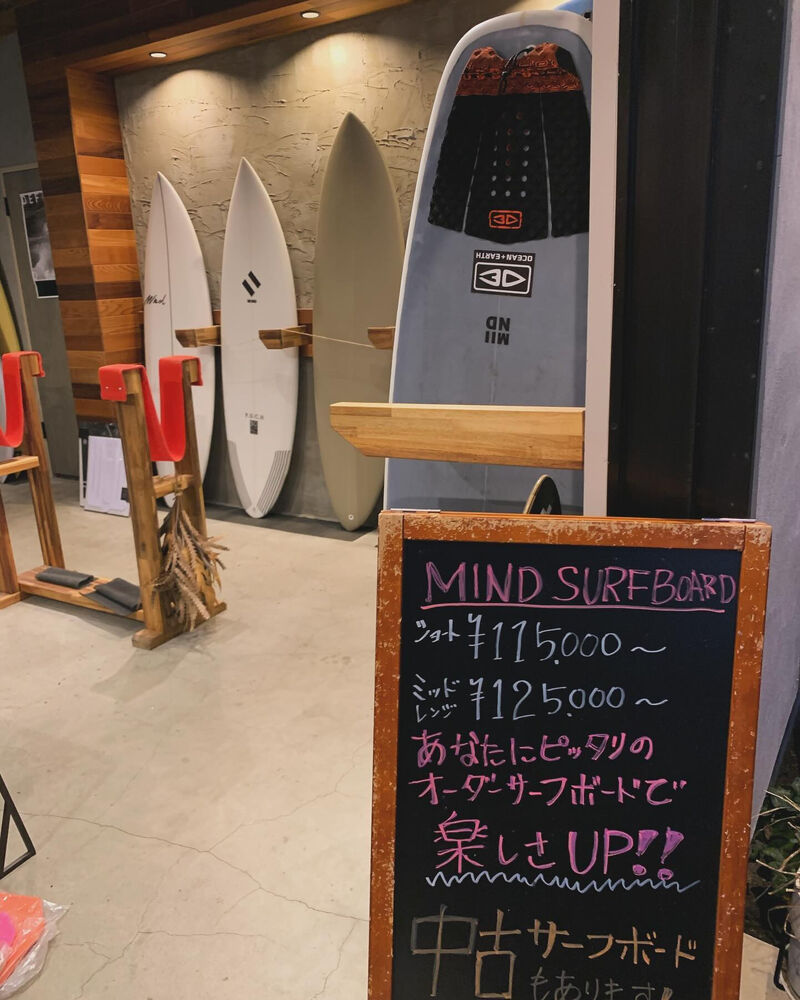 DEF
Mind
OCEAN+EARTH
MIIND
MIND SURFBOARD
ショート ¥115.000〜
ミッドレンジ ¥125.000〜
あなたにピッタリの
オーダーサーフボードで
楽しさUP!!
中古サーフボード
もあります!